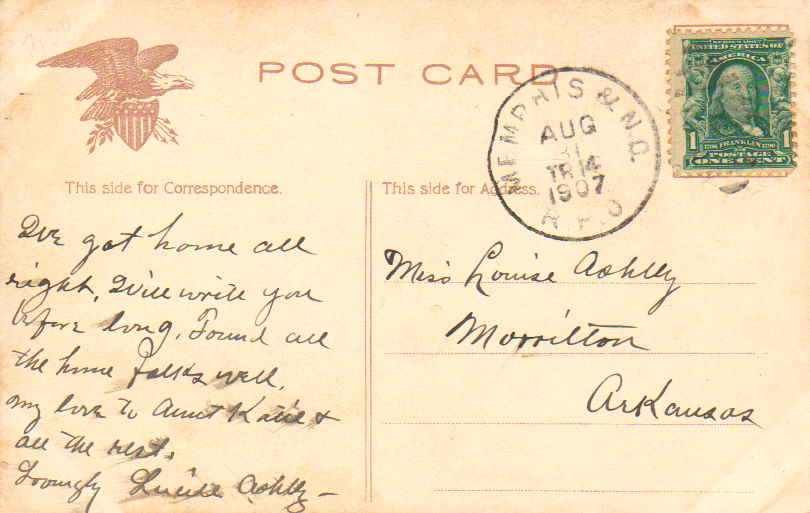 POST CARD
SERIES 1902
UNITED STATES OF
AMERICA
1 1
1706 FRANKLIN 1790
POSTAGE
ONE CENT
MEMPHIS & N.O.
AUG
31
TR14
1907
R.P.O
This side for Correspondence.
We got home all
right. Will write you
before long. Found all
the home folks well.
My love to Aunt Katie &
all the rest.
Lovingly Louise Ashlly
This side for Address.
Miss Louise Ashlly
Morrilton
Arkansas